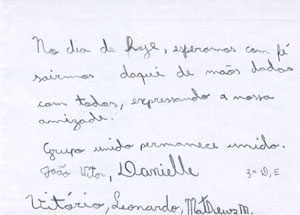 No dia de hoje, esperamos com fé
sairmos daqui de mãos dadas
com todos, expressando a nossa
amizade.
Grupo unido permanece unido.
João Vitor, Danielle 3ª D, E
Vitório, Leonardo, Matheus M.